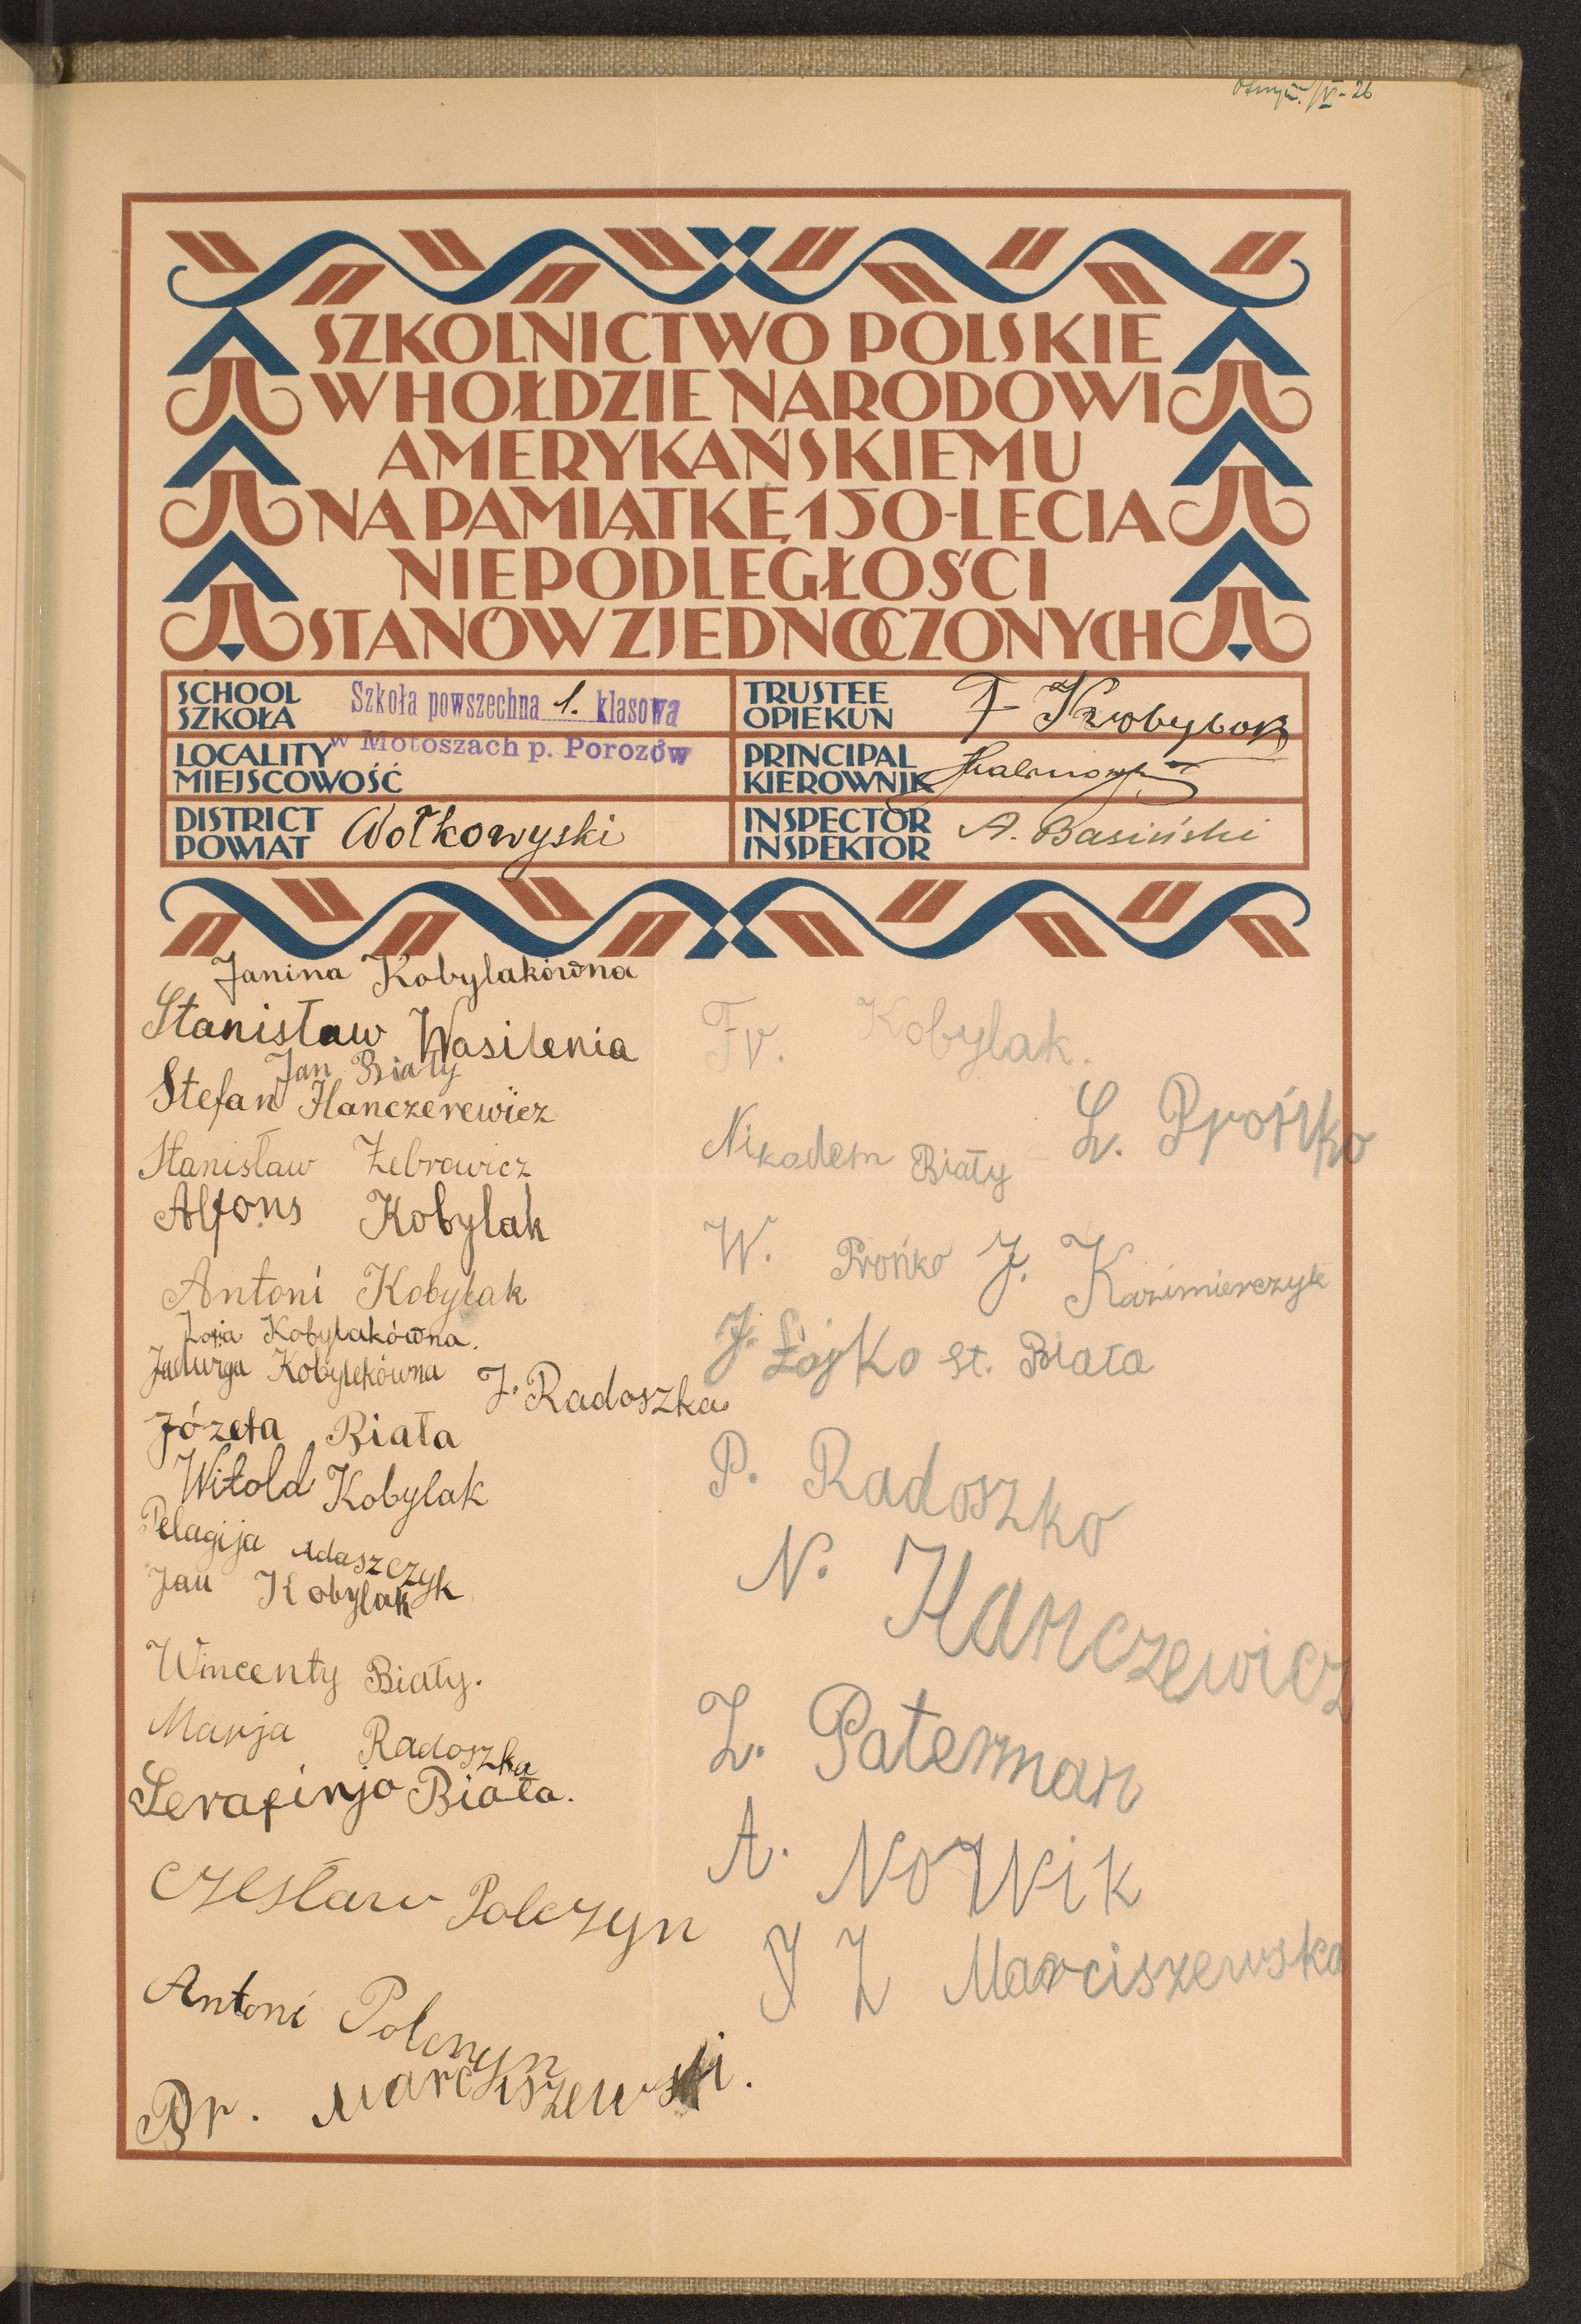 SZKOLNICTWO POLSKIE
W HOŁDZIE NARODOWI
AMERYKAŃSKIEMU
NA PAMIĄTKĘ 150-LECIA
NIEPODLEGŁOŚCI
STANÓW ZJEDNOCZONYCH
SCHOOL
SZKOŁA
Szkoła powszechna 1. klasowa
LOCALITY
MIEJSCOWOŚĆ
w Motoszach p. Porozów
DISTRICT
POWIAT
Wołkowyski
TRUSTEE
OPIEKUN
F
PRINCIPAL
KIEROWNIK
INSPECTOR
INSPEKTOR
A. Basiński
Janina Kobylakówna
Stanisław Wasilenia
Jan Biały
Stefan Hanczerewicz
Stanisław Żebrowicz
Alfons Kobylak
Antoni Kobylak
Zofja Kobylakówna.
Jadwiga Kobylekówna
J. Radoszka
Józefa Biała
Witold Kobylak
Pelagija Adaszczyk
Jan Kobylak
Wincenty Biały.
Marja Radoszka
Serafinja Biała.
Czesław Polczyn
Antoni Polczyn
Br. Marciszewski.
Fr. Kobylak.
L. Prońko
Nikodem Biały
W. Prońko
J. Kazimierczyk
J. Łojko
st. Biała
P. Radoszko
N. Hanczewicz
Z. Paterman
A. Nowik
J Z Marciszewska